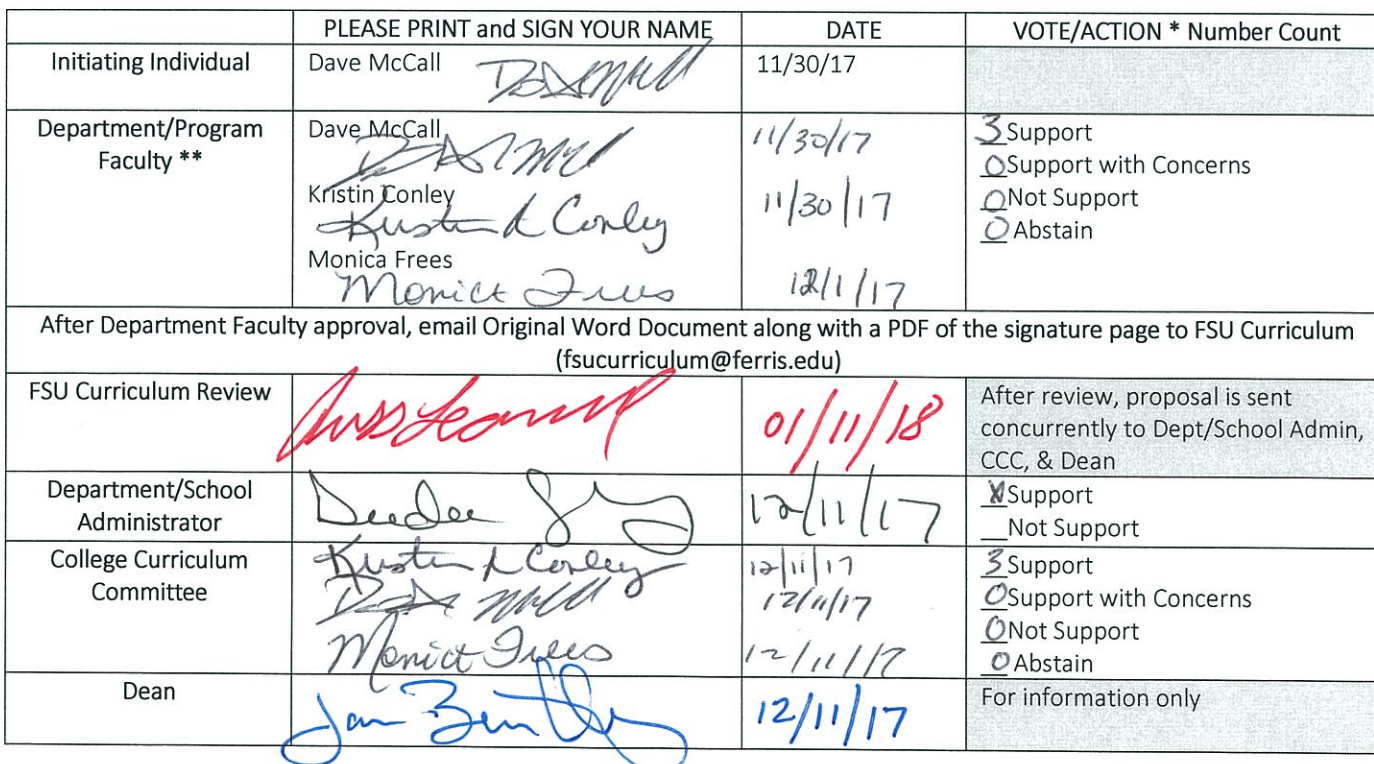 PLEASE PRINT and SIGN YOUR NAME DATE VOTE/ACTION * Number Count
Initiating Individual Dave McCall 11/30/17
Department/Program Faculty ** Dave McCall 11/30/17
Kristin Conley 11/30/17
Kristin A Conley
Monica Frees
Monica Frees 12/1/17
3 Support
0 Support with Concerns
0 Not Support
0 Abstain
After Department Faculty approval, email Original Word Document along with a PDF of the signature page to FSU Curriculum
(fsucurriculum@ferris.edu)
FSU Curriculum Review 01/11/18
After review, proposal is sent
concurrently to Dept/School Admin,
CCC, & Dean
Department/School
Administrator
Deedee 12/11/17
X Support
__Not Support
College Curriculum
Committee
Kristin A Conley 12/11/17
12/11/17
Monica Frees 12/11/17
3 Support
0 Support with Concerns
0 Not Support
0 Abstain
Dean 12/11/17
For information only